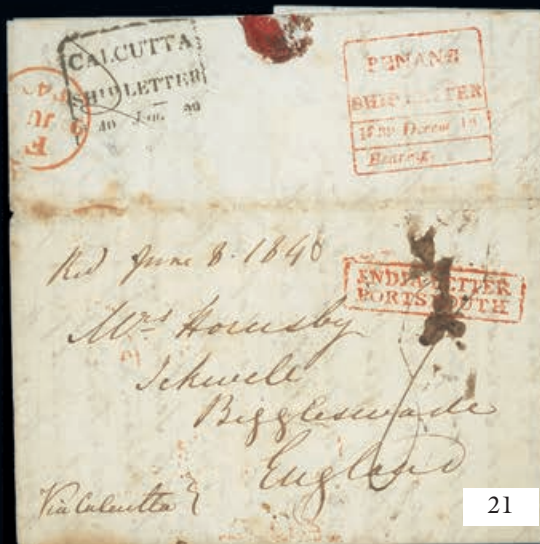 CALCUTTA
SHIP LETTER
PENANG
SHIP LETTER
Bearing.
F
JU
Recd June 8. 1840
INDIA LETTER
PORTSMOUTH
Mrs Hornsby
Ickwell
Biggleswade
England
Via Calcutta
21